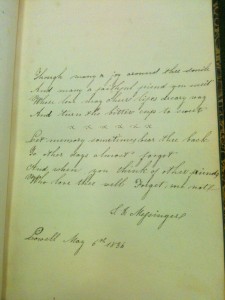 Though many a joy around thee smile
And many a faithful friend you meet
Where love may cheer life's dreary way
And turn the bitter cup to sweet
x x x x x x
Let memory sometimes bear thee back
To other days almost forgot
And when you think of other friends
Who love thee well Forget me not
S. E.
Lowell May 6th